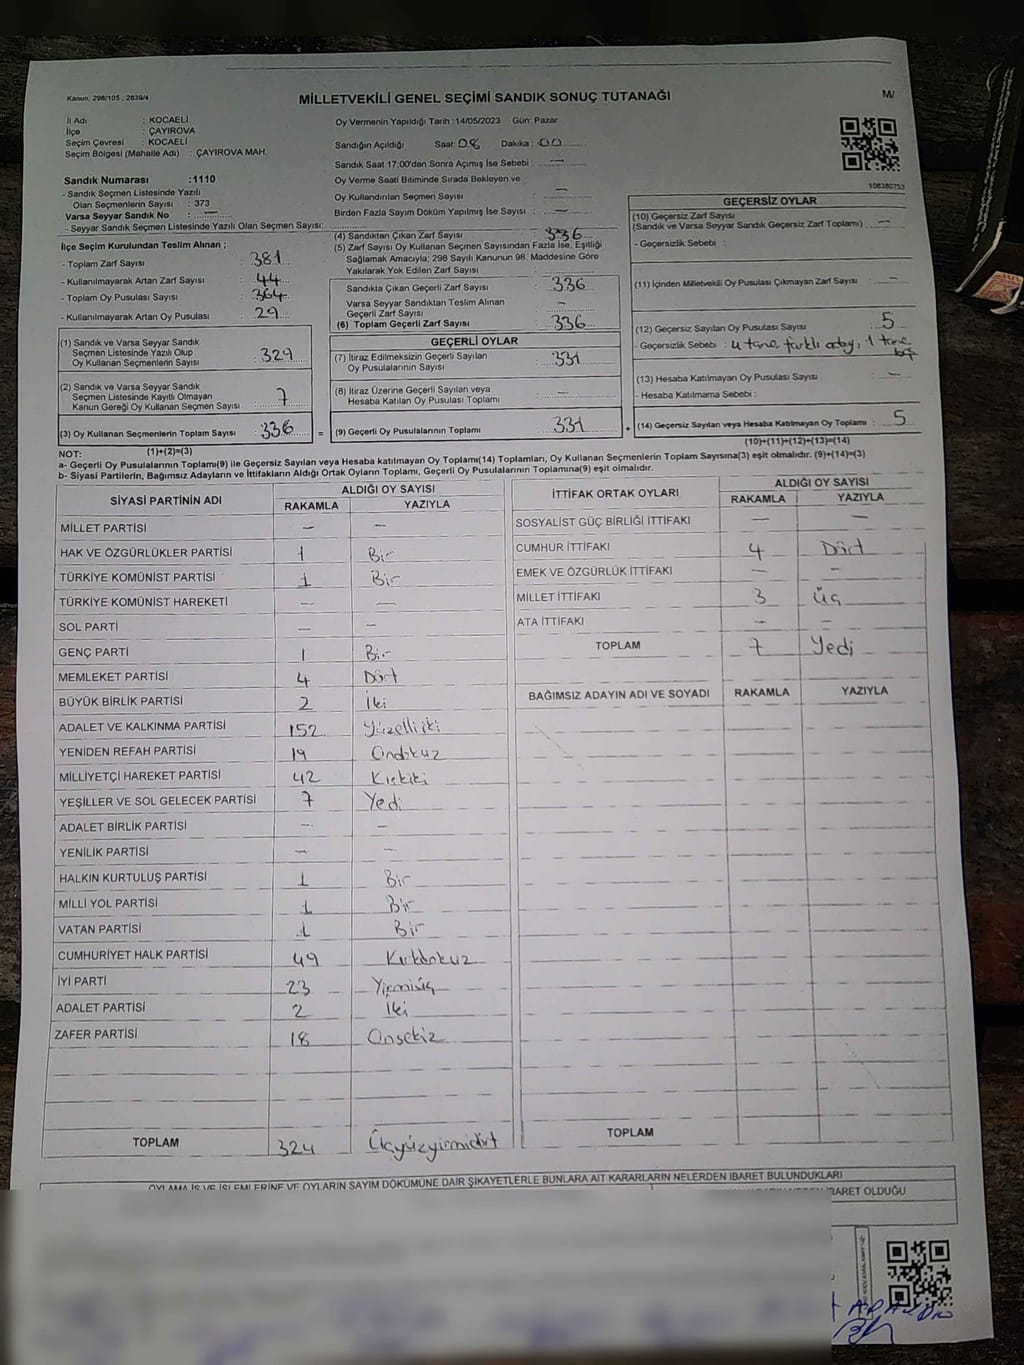 Kanun: 298/105 , 2839/4
MİLLETVEKİLİ GENEL SEÇİMİ SANDIK SONUÇ TUTANAĞI
M/
İl Adı : KOCAELİ
İlçe : ÇAYIROVA
Seçim Çevresi : KOCAELİ
Seçim Bölgesi (Mahalle Adı) : ÇAYIROVA MAH.
Oy Vermenin Yapıldığı Tarih :14/05/2023 Gün: Pazar
Sandığın Açıldığı Saat: 08 Dakika : 00
Sandık Saat 17:00'den Sonra Açımış İse Sebebi : —
Oy Verme Saati Bitiminde Sırada Bekleyen ve
Oy Kullandırılan Seçmen Sayısı : —
Birden Fazla Sayım Döküm Yapılmış İse Sayısı : —
106380753
Sandık Numarası :1110
- Sandık Seçmen Listesinde Yazılı
Olan Seçmenlerin Sayısı : 373
Varsa Seyyar Sandık No : —
- Seyyar Sandık Seçmen Listesinde Yazılı Olan Seçmen Sayısı:
İlçe Seçim Kurulundan Teslim Alınan ;
- Toplam Zarf Sayısı : 381
- Kullanılmayarak Artan Zarf Sayısı : 44
- Toplam Oy Pusulası Sayısı : 364
- Kullanılmayarak Artan Oy Pusulası : 29
(1) Sandık ve Varsa Seyyar Sandık
Seçmen Listesinde Yazılı Olup
Oy Kullanan Seçmenlerin Sayısı : 329
(2) Sandık ve Varsa Seyyar Sandık
Seçmen Listesinde Kayıtlı Olmayan
Kanun Gereği Oy Kullanan Seçmen Sayısı : 7
(3) Oy Kullanan Seçmenlerin Toplam Sayısı : 336
(1)+(2)=(3)
(4) Sandıktan Çıkan Zarf Sayısı : 336
(5) Zarf Sayısı Oy Kullanan Seçmen Sayısından Fazla İse, Eşitliği
Sağlamak Amacıyla; 298 Sayılı Kanunun 98. Maddesine Göre
Yakılarak Yok Edilen Zarf Sayısı :
Sandıkta Çıkan Geçerli Zarf Sayısı : 336
Varsa Seyyar Sandıktan Teslim Alınan
Geçerli Zarf Sayısı : —
(6) Toplam Geçerli Zarf Sayısı : 336
GEÇERLİ OYLAR
(7) İtiraz Edilmeksizin Geçerli Sayılan
Oy Pusulalarının Sayısı : 331
(8) İtiraz Üzerine Geçerli Sayılan veya
Hesaba Katılan Oy Pusulası Toplamı : —
= (9) Geçerli Oy Pusulalarının Toplamı : 331
GEÇERSİZ OYLAR
(10) Geçersiz Zarf Sayısı : —
(Sandık ve Varsa Seyyar Sandık Geçersiz Zarf Toplamı)
- Geçersizlik Sebebi :
(11) İçinden Milletvekili Oy Pusulası Çıkmayan Zarf Sayısı : —
(12) Geçersiz Sayılan Oy Pusulası Sayısı : 5
- Geçersizlik Sebebi : 4 tane farklı oday, 1 tane
boş
(13) Hesaba Katılmayan Oy Pusulası Sayısı : —
- Hesaba Katılmama Sebebi :
+ (14) Geçersiz Sayılan veya Hesaba Katılmayan Oy Toplamı : 5
(10)+(11)+(12)+(13)=(14)
NOT:
a- Geçerli Oy Pusulalarının Toplamı(9) ile Geçersiz Sayılan veya Hesaba katılmayan Oy Toplamı(14) Toplamları, Oy Kullanan Seçmenlerin Toplam Sayısına(3) eşit olmalıdır. (9)+(14)=(3)
b- Siyasi Partilerin, Bağımsız Adayların ve İttifakların Aldığı Ortak Oyların Toplamı, Geçerli Oy Pusulalarının Toplamına(9) eşit olmalıdır.
SİYASİ PARTİNİN ADI
ALDIĞI OY SAYISI
RAKAMLA YAZIYLA
MİLLET PARTİSİ — —
HAK VE ÖZGÜRLÜKLER PARTİSİ 1 Bir
TÜRKİYE KOMÜNİST PARTİSİ 1 Bir
TÜRKİYE KOMÜNİST HAREKETİ — —
SOL PARTİ — —
GENÇ PARTİ 1 Bir
MEMLEKET PARTİSİ 4 Dört
BÜYÜK BİRLİK PARTİSİ 2 İki
ADALET VE KALKINMA PARTİSİ 152 Yüzelliiki
YENİDEN REFAH PARTİSİ 19 Ondokuz
MİLLİYETÇİ HAREKET PARTİSİ 42 Kırkiki
YEŞİLLER VE SOL GELECEK PARTİSİ 7 Yedi
ADALET BİRLİK PARTİSİ — —
YENİLİK PARTİSİ — —
HALKIN KURTULUŞ PARTİSİ 1 Bir
MİLLİ YOL PARTİSİ 1 Bir
VATAN PARTİSİ 1 Bir
CUMHURİYET HALK PARTİSİ 49 Kırkdokuz
İYİ PARTİ 23 Yirmiüç
ADALET PARTİSİ 2 İki
ZAFER PARTİSİ 18 Onsekiz
TOPLAM 324 Üçyüzyirmidört
İTTİFAK ORTAK OYLARI
ALDIĞI OY SAYISI
RAKAMLA YAZIYLA
SOSYALİST GÜÇ BİRLİĞİ İTTİFAKI — —
CUMHUR İTTİFAKI 4 Dört
EMEK VE ÖZGÜRLÜK İTTİFAKI — —
MİLLET İTTİFAKI 3 Üç
ATA İTTİFAKI — —
TOPLAM 7 Yedi
BAĞIMSIZ ADAYIN ADI VE SOYADI RAKAMLA YAZIYLA
TOPLAM
OYLAMA İŞ VE İŞLEMLERİNE VE OYLARIN SAYIM DÖKÜMÜNE DAİR ŞİKAYETLERLE BUNLARA AİT KARARLARIN NELERDEN İBARET BULUNDUKLARI
İBARET OLDUĞU